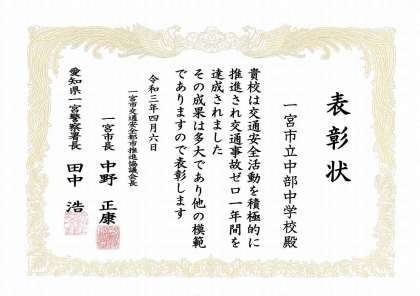 表彰状
一宮市立中部中学校殿
貴校は交通安全活動を積極的に
推進され交通事故ゼロ一年間を
達成されました
その成果は多大であり他の模範
でありますので表彰します
令和三年四月六日
一宮市交通安全都市推進協議会長
一宮市長 中野正康
愛知県一宮警察署長 田中浩